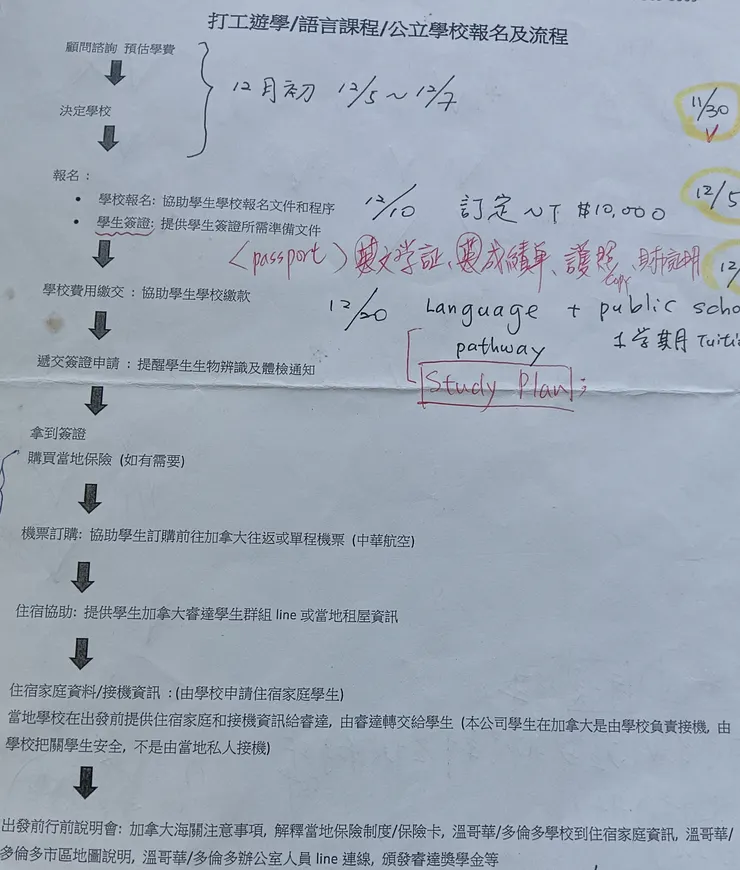 打工遊學/語言課程/公立學校報名及流程
顧問諮詢 預估學費
12月初 12/5~12/7
11/30
決定學校
報名：
12/5
• 學校報名: 協助學生學校報名文件和程序
12/10 訂定 NT $10,000
• 學生簽證: 提供學生簽證所需準備文件
<passport> 英文学証、英成績單、護照、財証明
copy
12/
學校費用繳交：協助學生學校繳款
12/20 Language + public scho
pathway
1学期 Tuiti
遞交簽證申請：提醒學生生物辨識及體檢通知
Study Plan;
拿到簽證
購買當地保險 (如有需要)
機票訂購: 協助學生訂購前往加拿大往返或單程機票 (中華航空)
住宿協助: 提供學生加拿大睿達學生群組 line 或當地租屋資訊
住宿家庭資料/接機資訊：(由學校申請住宿家庭學生)
當地學校在出發前提供住宿家庭和接機資訊給睿達, 由睿達轉交給學生 (本公司學生在加拿大是由學校負責接機, 由
學校把關學生安全, 不是由當地私人接機)
出發前行前說明會: 加拿大海關注意事項, 解釋當地保險制度/保險卡, 溫哥華/多倫多學校到住宿家庭資訊, 溫哥華/
多倫多市區地圖說明, 溫哥華/多倫多辦公室人員 line 連線, 頒發睿達獎學金等